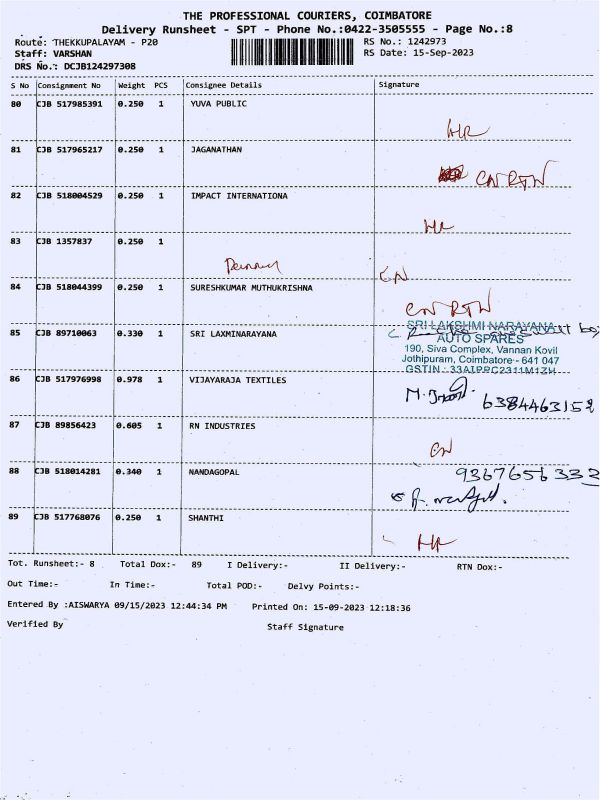 THE PROFESSIONAL COURIERS, COIMBATORE
Delivery Runsheet - SPT - Phone No.:0422-3505555 - Page No.:8
Route: THEKKUPALAYAM - P20 RS No.: 1242973
Staff: VARSHAN RS Date: 15-Sep-2023
DRS No.: DCJB124297308
S No Consignment No Weight PCS Consignee Details Signature
80 CJB 517985391 0.250 1 YUVA PUBLIC
HR
81 CJB 517965217 0.250 1 JAGANATHAN
CN RTN
82 CJB 518004529 0.250 1 IMPACT INTERNATIONA
HR
83 CJB 1357837 0.250 1
CN
84 CJB 518044399 0.250 1 SURESHKUMAR MUTHUKRISHNA
CN RTN
85 CJB 89710063 0.330 1 SRI LAXMINARAYANA
SRI LAKSHMI NARAYANA
AUTO SPARES
190, Siva Complex, Vannan Kovil
Jothipuram, Coimbatore - 641 047
GSTIN : 33AIPPC2311M1ZH
86 CJB 517976998 0.978 1 VIJAYARAJA TEXTILES
6384463152
87 CJB 89856423 0.605 1 RN INDUSTRIES
CN
88 CJB 518014281 0.340 1 NANDAGOPAL
9367656332
89 CJB 517768076 0.250 1 SHANTHI
HR
Tot. Runsheet:- 8 Total Dox:- 89 I Delivery:- II Delivery:- RTN Dox:-
Out Time:- In Time:- Total POD:- Delvy Points:-
Entered By :AISWARYA 09/15/2023 12:44:34 PM Printed On: 15-09-2023 12:18:36
Verified By Staff Signature